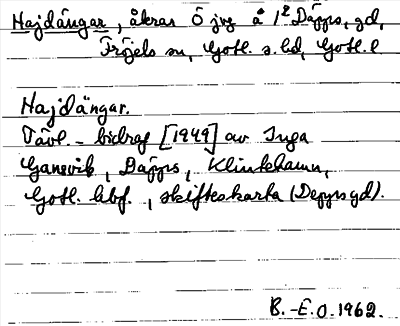 Hajdängar, åkrar Ö jvg å 1² Däpps, gd,
Fröjels sn, Gotl. s. hd, Gotl. l
Hajdängar.
Tävl.-bidrag [1949] av Inga
Ganevik, Däpps, Klintehamn,
Gotl. hbf., skifteskarta (Depps gd).
B.-E.O. 1962.